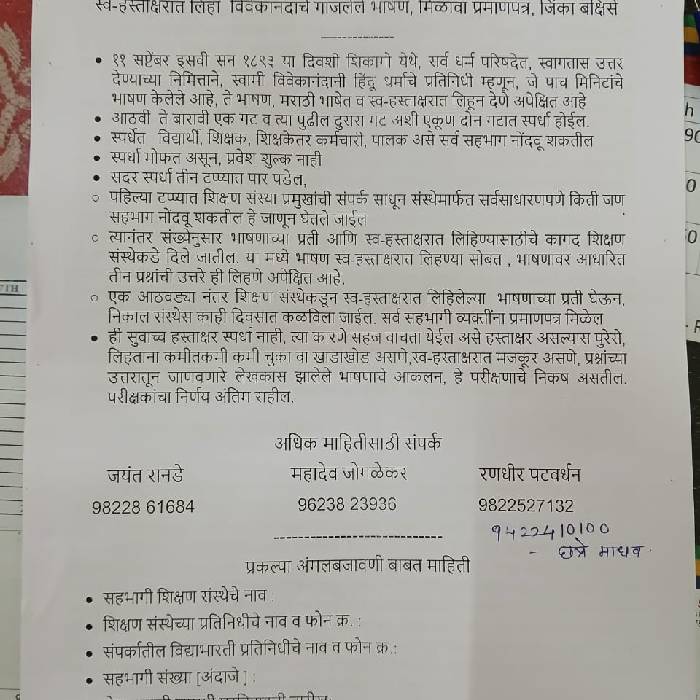 स्व-हस्ताक्षरात लिहा विवेकानंदांचे गाजलेले भाषण, मिळवा प्रमाणपत्र, जिंका बक्षिसे
• ११ सप्टेंबर इसवी सन १८९३ या दिवशी शिकागो येथे, सर्व धर्म परिषदेत, स्वागतास उत्तर
देण्याच्या निमित्ताने, स्वामी विवेकानंदांनी हिंदू धर्माचे प्रतिनिधी म्हणून, जे पाच मिनिटांचे
भाषण केलेले आहे, ते भाषण, मराठी भाषेत व स्व-हस्ताक्षरात लिहून देणे अपेक्षित आहे
• आठवी ते बारावी एक गट व त्या पुढील दुसरा गट अशी एकूण दोन गटात स्पर्धा होईल.
• स्पर्धेत विद्यार्थी, शिक्षक, शिक्षकेतर कर्मचारी, पालक असे सर्व सहभाग नोंदवू शकतील
• स्पर्धा मोफत असून, प्रवेश शुल्क नाही
• सदर स्पर्धा तीन टप्प्यात पार पडेल,
○ पहिल्या टप्प्यात शिक्षण संस्था प्रमुखांची संपर्क साधून संस्थेमार्फत सर्वसाधारणपणे किती जण
सहभाग नोंदवू शकतील हे जाणून घेतले जाईल
○ त्यानंतर संख्येनुसार भाषणाच्या प्रती आणि स्व-हस्ताक्षरात लिहिण्यासाठीचे कागद शिक्षण
संस्थेकडे दिले जातील. या मध्ये भाषण स्व-हस्ताक्षरात लिहण्या सोबत , भाषणावर आधारित
तीन प्रश्नांची उत्तरे ही लिहणे अपेक्षित आहे.
○ एक आठवड्या नंतर शिक्षण संस्थेकडून स्व-हस्ताक्षरात लिहिलेल्या भाषणाच्या प्रती घेऊन,
निकाल संस्थेस काही दिवसात कळविला जाईल. सर्व सहभागी व्यक्तींना प्रमाणपत्र मिळेल
• ही सुवाच्य हस्ताक्षर स्पर्धा नाही, त्या करणे सहज वाचता येईल असे हस्ताक्षर असल्यास पुरेसे,
लिहताना कमीतकमी कमी चुका वा खाडाखोड असणे,स्व-हस्ताक्षरात मजकूर असणे, प्रश्नांच्या
उत्तरातून जाणवणारे लेखकास झालेले भाषणाचे आकलन, हे परीक्षणाचे निकष असतील.
परीक्षकांचा निर्णय अंतिम राहील.
अधिक माहितीसाठी संपर्क
जयंत रानडे महादेव जोगळेकर रणधीर पटवर्धन
98228 61684 96238 23936 9822527132
9422410100
- छत्रे माधव.
प्रकल्पा अंमलबजावणी बाबत माहिती
• सहभागी शिक्षण संस्थेचे नाव :
• शिक्षण संस्थेच्या प्रतिनिधीचे नाव व फोन क्र. :
• संपर्कातील विद्याभारती प्रतिनिधीचे नाव व फोन क्र.:
• सहभागी संख्या [अंदाजे] :